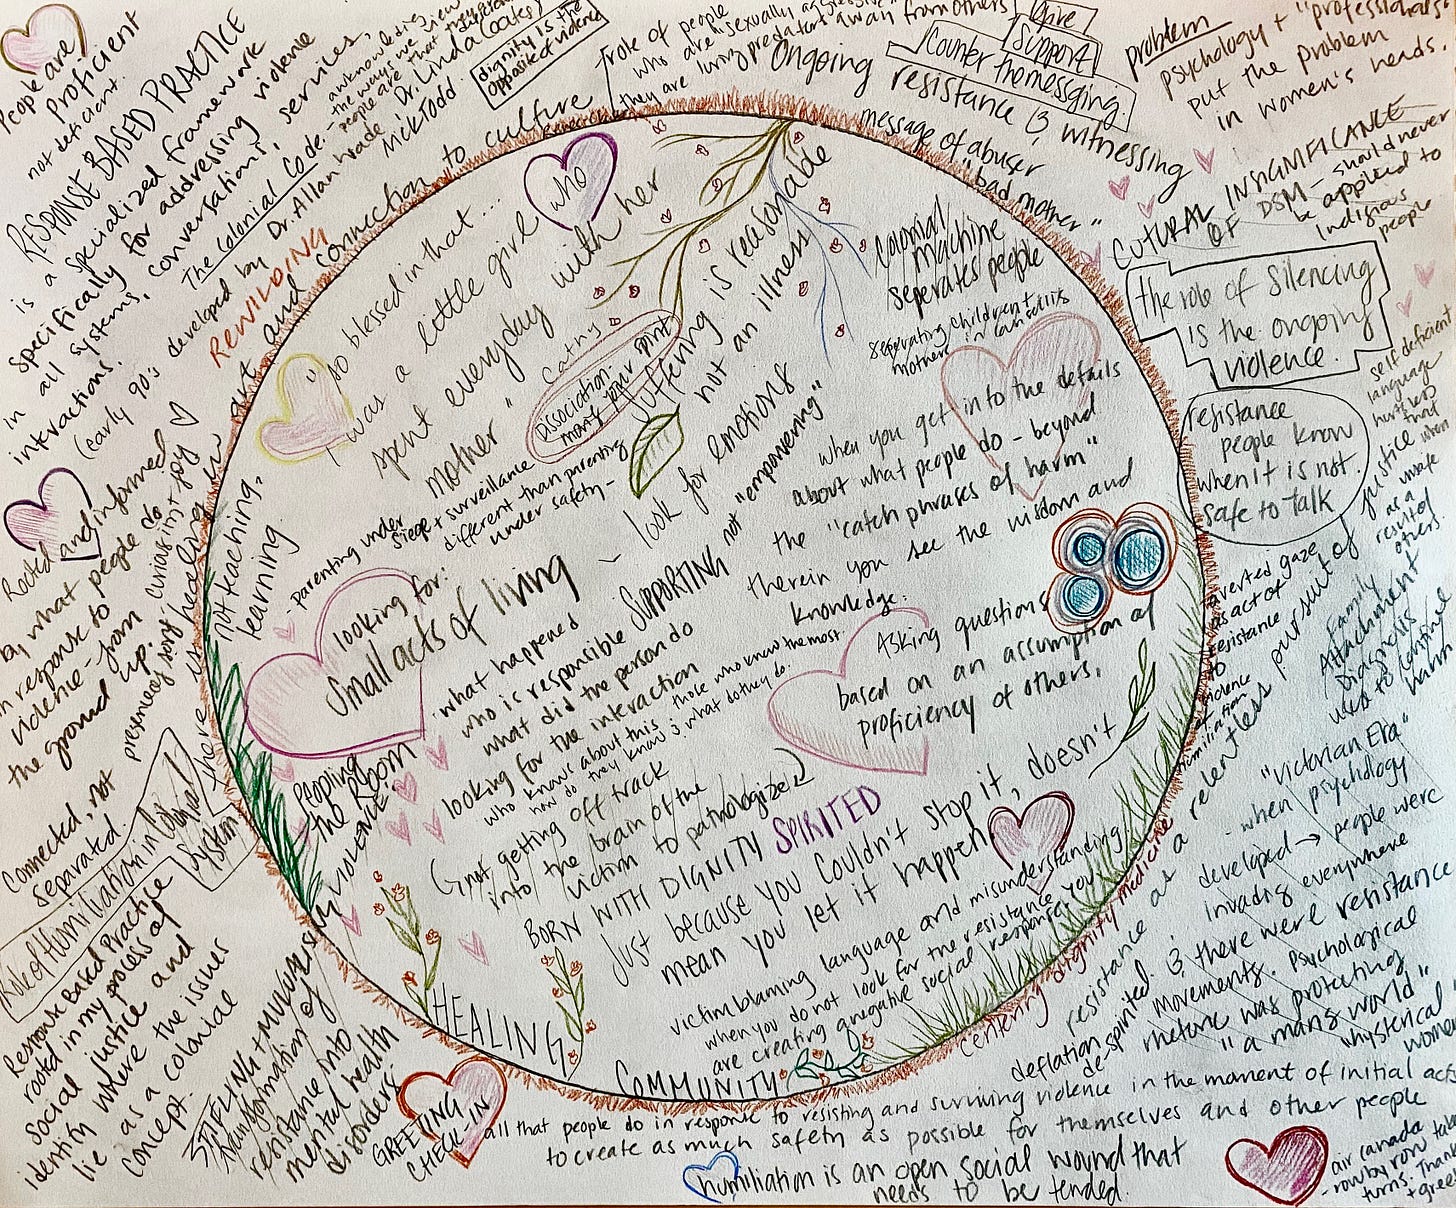 People are
proficient
not deficient.
RESPONSE BASED PRACTICE
is a specialized framework
specifically for addressing violence
in all systems, conversations, services,
interactions.
(early 90's
The Colonial Code.
developed by Dr. Allan Wade, Dr. Linda Coates,
Nick Todd
acknowledging
the ways we view
people are that
dignity is the
opposite of violence
REWILDING
role of people
who are "sexually aggressive"
luring predator away from others
they are
Ongoing
resistance & witnessing
Give
Support
Counter the messaging.
message of abuser
"bad mother"
problem
psychology + "professionals"
put the problem
in women's heads.
CUTURAL INSIGNIFICANCE
OF DSM - should never
be applied to
Indigious
people
the role of silencing
is the ongoing
violence.
resistance
people know
when it is not
safe to talk
self deficient
language
averted gaze
as act of
resistance
to
violence
humiliation
relentless pursuit of justice
as a result of
others
Family
Attachment
Diagnosis
used to continue
harm
"Victorian Era"
- when psychology
developed → people were
invading everywhere
& there were resistance
movements. Psychological
rhetoric was protecting
"a mans world"
"whysterical women"
resistance as a
deflation
de-spirited.
centering dignity medicine
connection to culture
art and
"so blessed in that...
I was a little girl who
spent everyday with her
mother"
Cathy
Dissociation:
many
spirit
suffering is reasonable
not an illness
Colonial
machine
seperates people
seperating children +
mothers in
not teaching,
learning.
- parenting under
siege + surveillance
different than parenting
under safety -
looking for:
small acts of living
~ look for emotions
SUPPORTING not "empowering"
when you get in to the details
about what people do - beyond
the "catch phrases of harm"
therein you see the wisdom and
knowledge.
Asking questions
based on an assumption of
proficiency of others.
what happened
who is responsible
what did the person do
looking for the interaction
who knows about this, those who know the most.
how do they know & what do they do.
not getting off track
into the brain of the
victim to pathologize
BORN WITH DIGNITY SPIRITED
Just because you couldn't stop it, doesn't
mean you let it happen
victim blaming language and misunderstanding
when you do not look for the resistance
are creating a negative social response
you
HEALING
COMMUNITY
Peopling
the Room
w VIOLENCE.
Rooted and informed
by what people do
in response to
violence - from
the ground up.
curiosity + joy
Connected, not
separated.
Role of Humiliation in Colonial
System
there
Response Based Practice
rooted in my process of
social justice and
identity where the issues
lie as a colonial
concept.
transformation of
resistance into
mental health
disorders.
GREETING
CHECK-IN
all that people do in response to resisting and surviving violence in the moment of initial act
to create as much safety as possible for themselves and other people
humiliation is an open social wound that
needs to be tended.
air canada
- row by row take
turns.